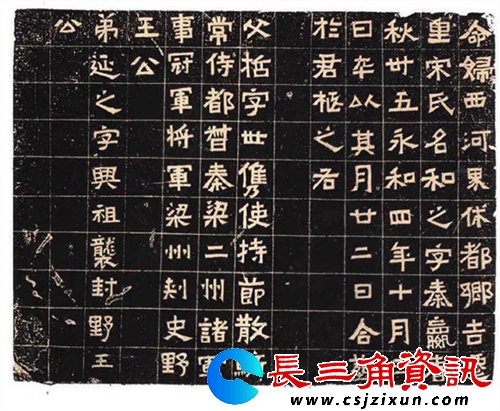 命婦西河界休都鄉吉遷
里宋氏名和之字秦嬴春
秋卅五永和四年十月
日卒以其月廿二日合葬
於君柩之右
父哲字世儁使持節散騎
常侍都督秦梁二州諸軍
事冠軍將軍梁州刺史野
王公
弟延之字興祖襲封野王
公
長三角資訊
www.csjzixun.com